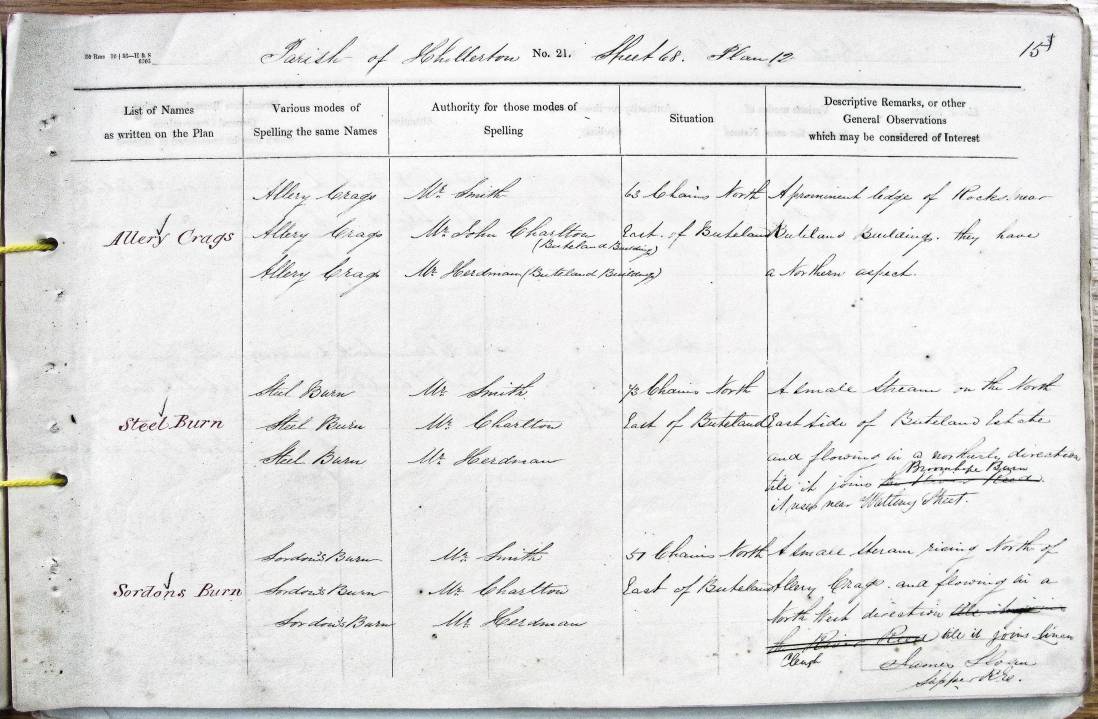 Parish of Chollerton No. 21. Sheet 68. Plan 12
15
List of Names
as written on the Plan
Various modes of
Spelling the same Names
Authority for those modes of
Spelling
Situation
Descriptive Remarks, or other
General Observations
which may be considered of Interest
Allery Crags
Allery Crags
Allery Crags
Allery Crags
Mr. Smith
Mr. John Charlton
(Buteland Building)
Mr. Herdman (Buteland Building)
63 Chains North
East of Buteland
A prominent ledge of Rocks near
Buteland Buildings. they have
a Northern aspect.
Steel Burn
Steel Burn
Steel Burn
Steel Burn
Mr. Smith
Mr. Charlton
Mr. Herdman
73 Chains North
East of Buteland
A small Stream on the North
East side of Buteland Estate
and flowing in a northerly direction
till it joins Broomhope Burn
it rises near Watling Street.
Sordons Burn
Sordon's Burn
Sordon's Burn
Sordon's Burn
Mr. Smith
Mr. Charlton
Mr. Herdman
57 Chains North
East of Buteland
A small Steram rising North of
Allery Crags. and flowing in a
North West direction
the River Reed till it joins Linen
Cleugh
James Sloan
Sapper R.E.